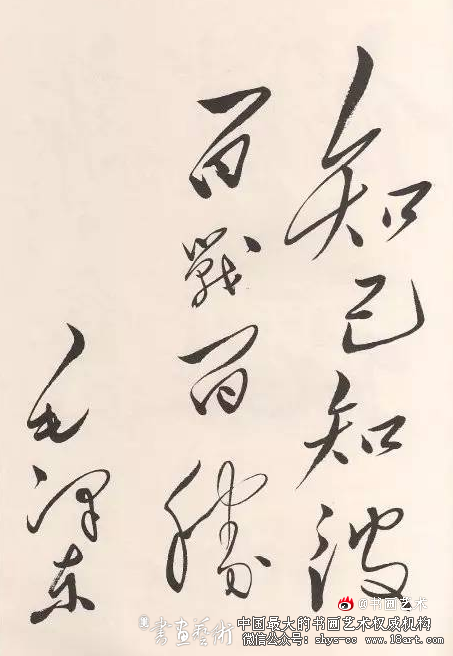 知己知彼
百戰百勝
毛泽东
@书画艺术
書畫藝術
中国最大的书画艺术权威机构
微信公众号：shys-cc www.18art.com